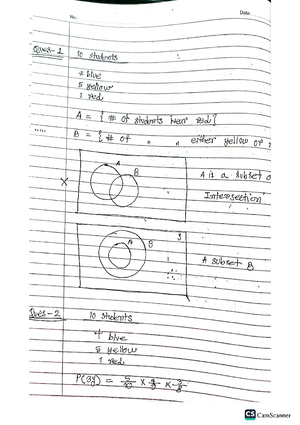 No:
Date:
Ques-1
10 students
4 blue
5 yellow
1 red
A = { # of students wear red }
B = { # of " " either yellow or
A
B
A is a subset
Intersection
X
S
A
B
A subset B
Ques-2
10 students
4 blue
5 yellow
1 red
P(3y) = 5/10 × 4/9 × 3/8
CS CamScanner